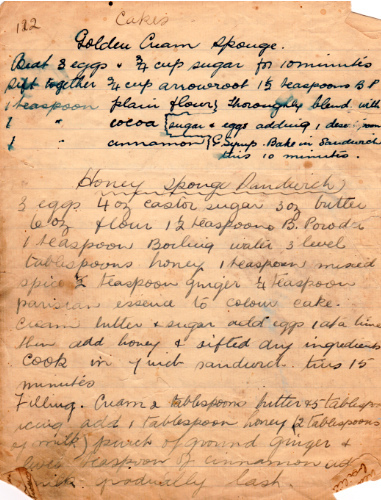 122 Cakes
Golden Cream Sponge.
Beat 3 eggs & ¾ cup sugar for 10 minutes
Sift together ¾ cup arrowroot 1½ teaspoons B.P
1 teaspoon plain flour } thoroughly blend with
1 " cocoa { sugar & eggs adding 1 desertspoon
1 " cinnamon } G. Syrup. Bake in Sandwich
tins 10 minutes.
Honey Sponge Sandwich
3 eggs 4 oz castor sugar 3 oz butter
6 oz flour 1½ teaspoons B. Powder
1 teaspoon Boiling water 3 level
tablespoons honey 1 teaspoon mixed
spice ½ teaspoon ginger ¼ teaspoon
parisian essence to colour cake.
Cream butter & sugar add eggs 1 at a time
then add honey & sifted dry ingredients
Cook in 7 inch sandwich tins 15
minutes
Filling. Cream 2 tablespoons butter & 5 tablespoons
icing add 1 tablespoon honey (2 tablespoons
of milk) pinch of ground ginger &
teaspoon of cinnamon
gradually last.